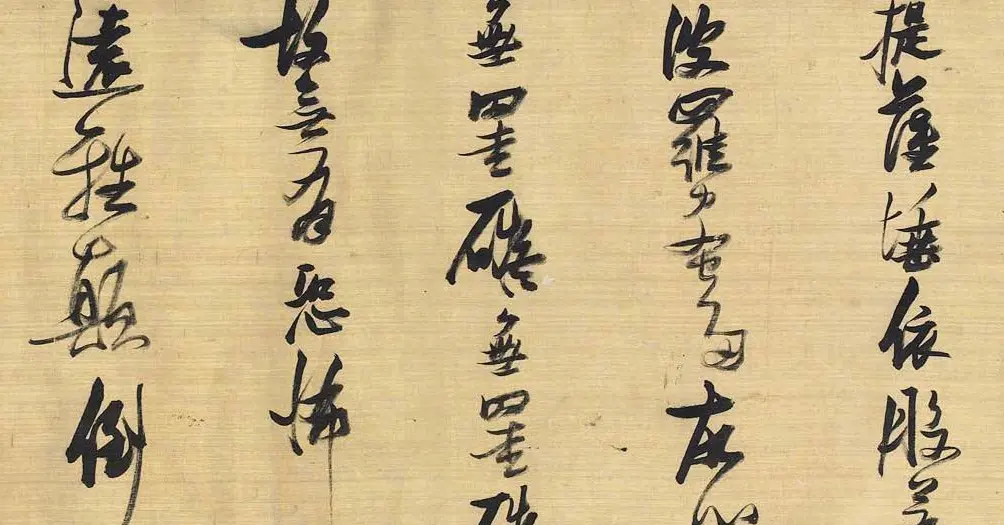 提薩埵依般若
波羅蜜多故心
無罣礙無罣礙
故無有恐怖
遠離顛倒